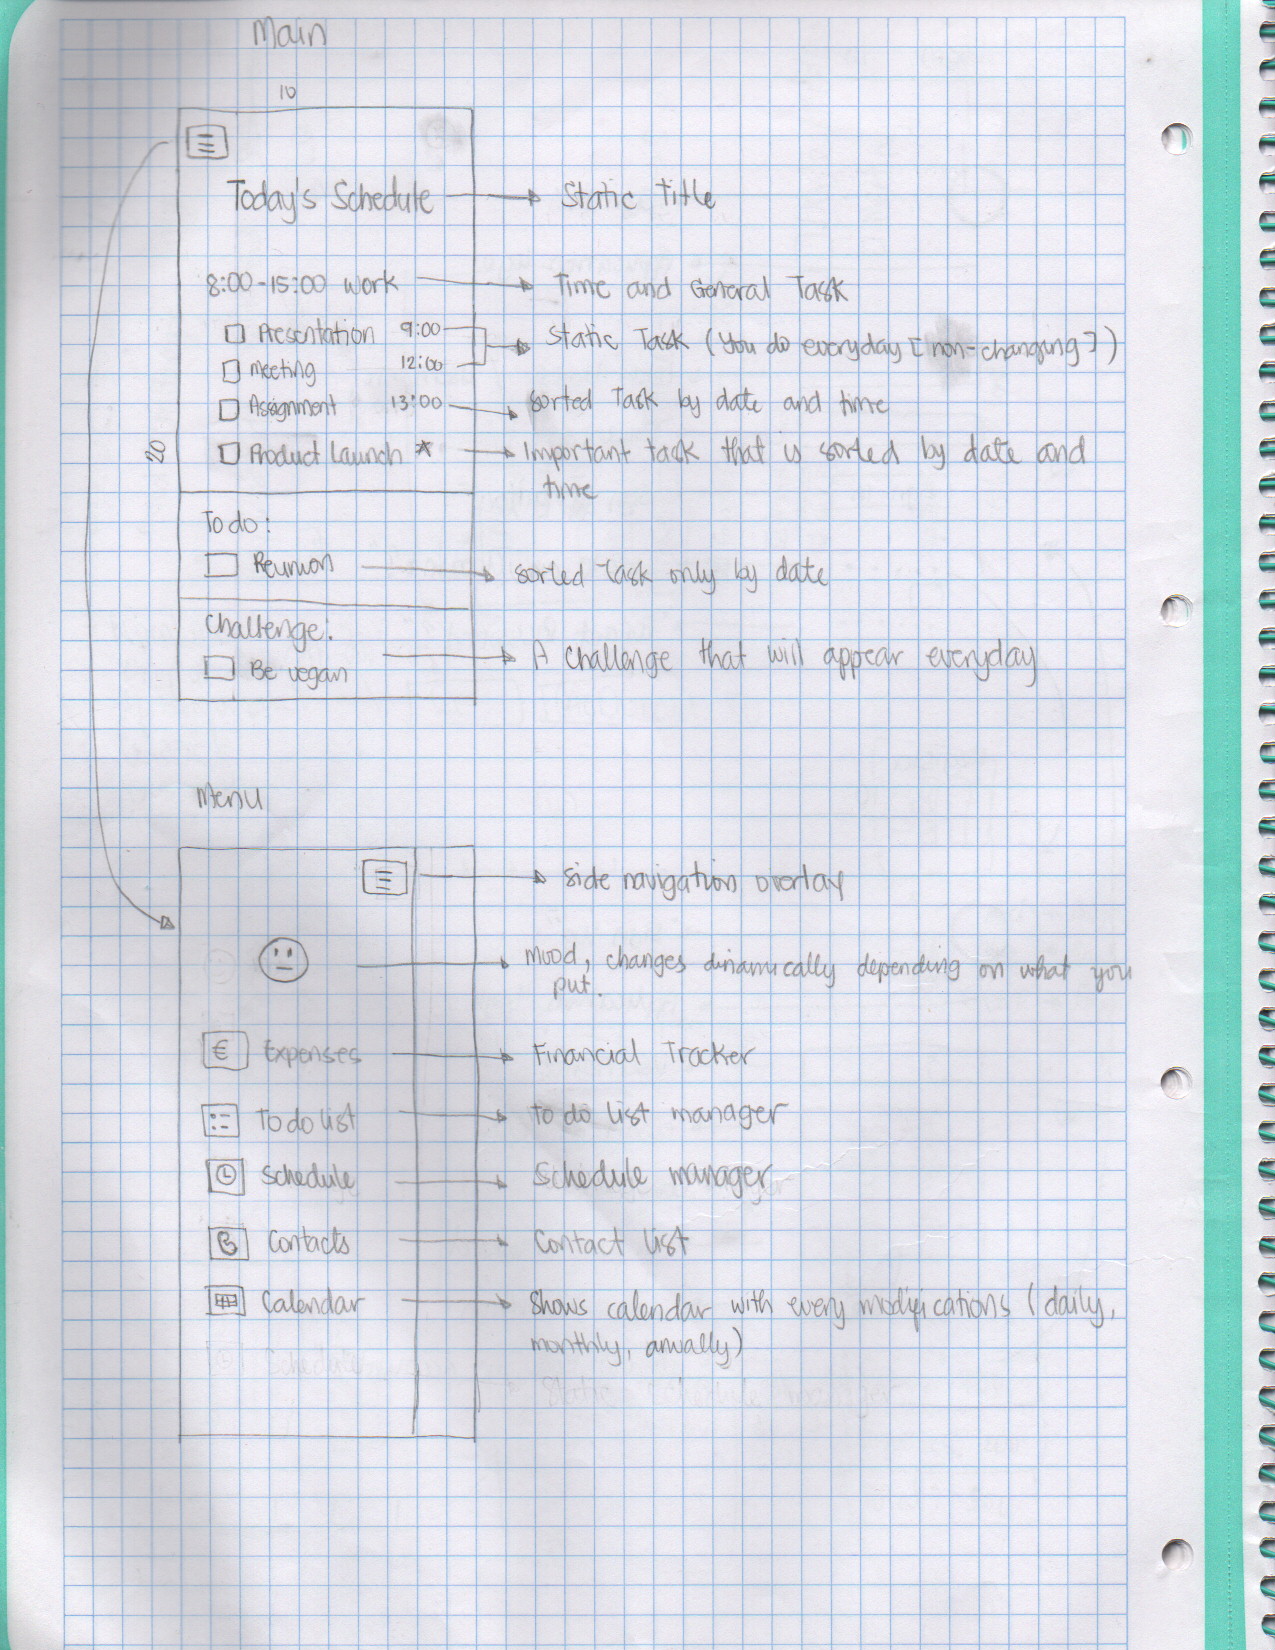 Main
10
Today's Schedule → Static Title
8:00-15:00 Work → Time and General Task
Presentation 9:00 → Static Task (You do everyday [non-changing])
Meeting 12:00
Assignment 13:00 → Sorted Task by date and time
20
Product Launch ★ → Important task that is sorted by date and
time
To do:
Reunion → Sorted Task only by date
Challenge:
Be vegan → A challenge that will appear everyday
Menu
→ Side navigation overlay
→ Mood, changes dinamically depending on what you
put.
€ Expenses → Financial Tracker
To do list → To do list manager
Schedule → Schedule manager
Contacts → Contact list
Calendar → Shows calendar with every modifications (daily,
monthly, anually)
Schedule
Static Schedule manager